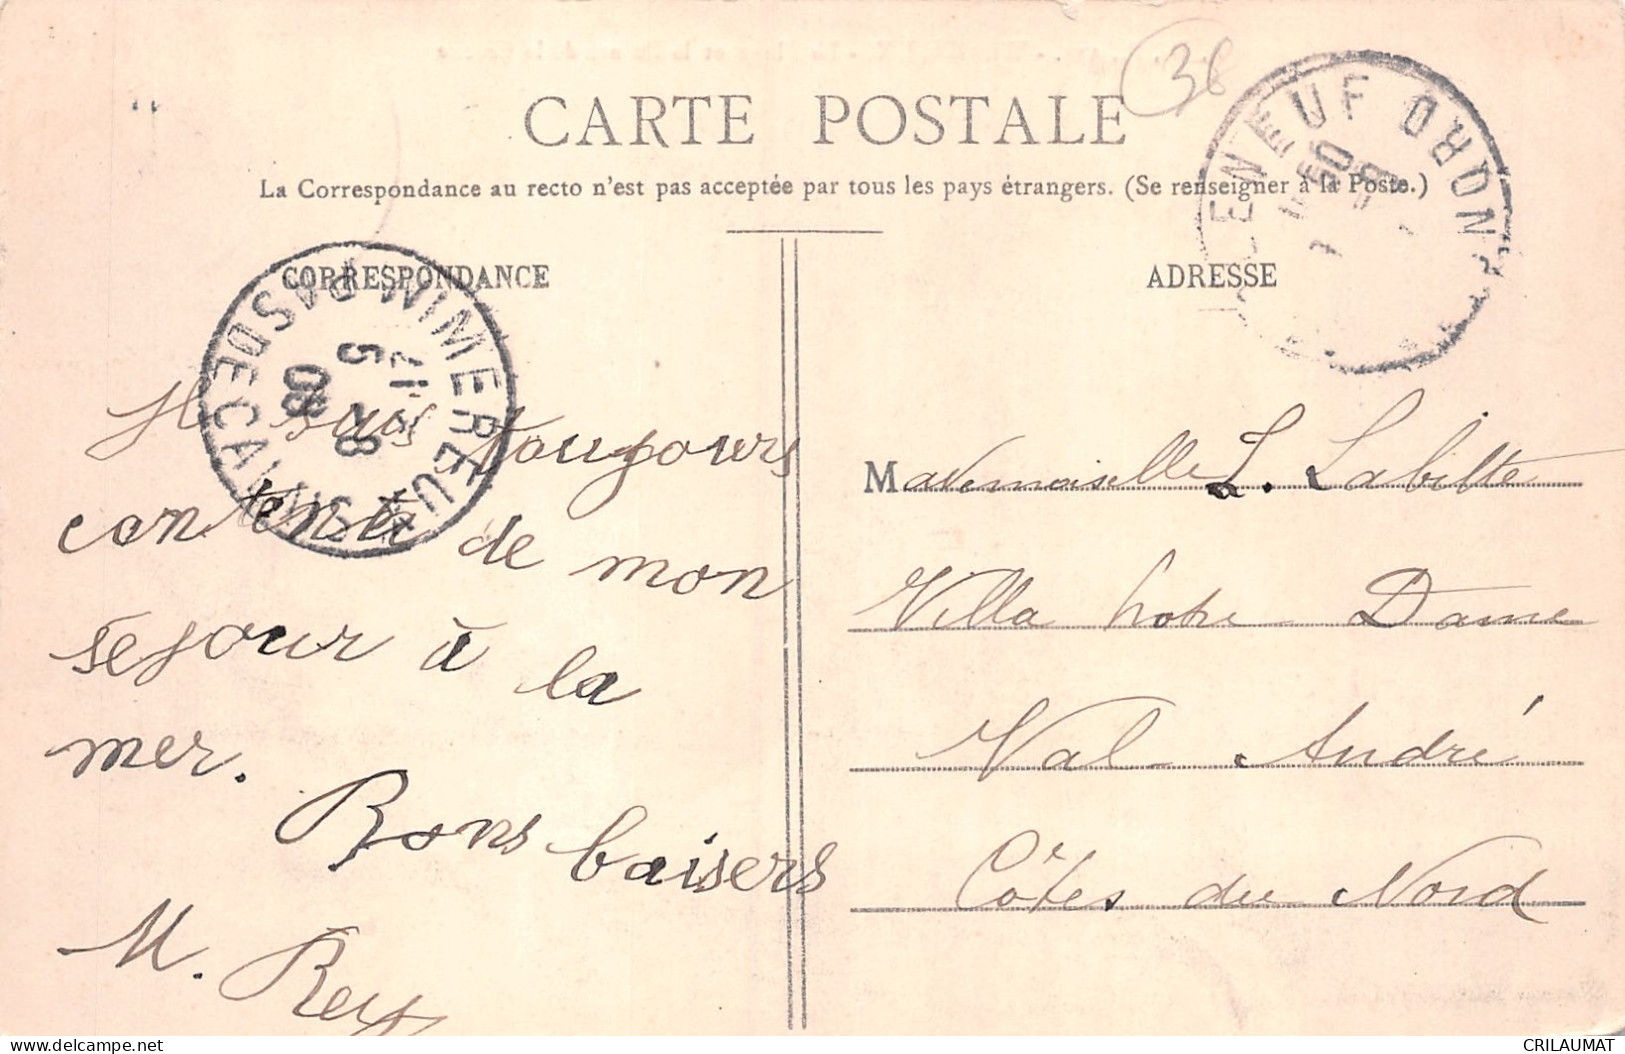 36
CARTE POSTALE
La Correspondance au recto n'est pas acceptée par tous les pays étrangers. (Se renseigner à la Poste.)
CORRESPONDANCE
ADRESSE
WIMEREUX
PAS DE CALAIS
5 -8
08
ENEUF
NORD
50
-8
Je suis toujours
contente de mon
séjour à la
mer.
Bons baisers
M. Rey
Mademoiselle L. Labitte
Villa Notre Dame
Val-André
Côtes du Nord
CRILAUMAT